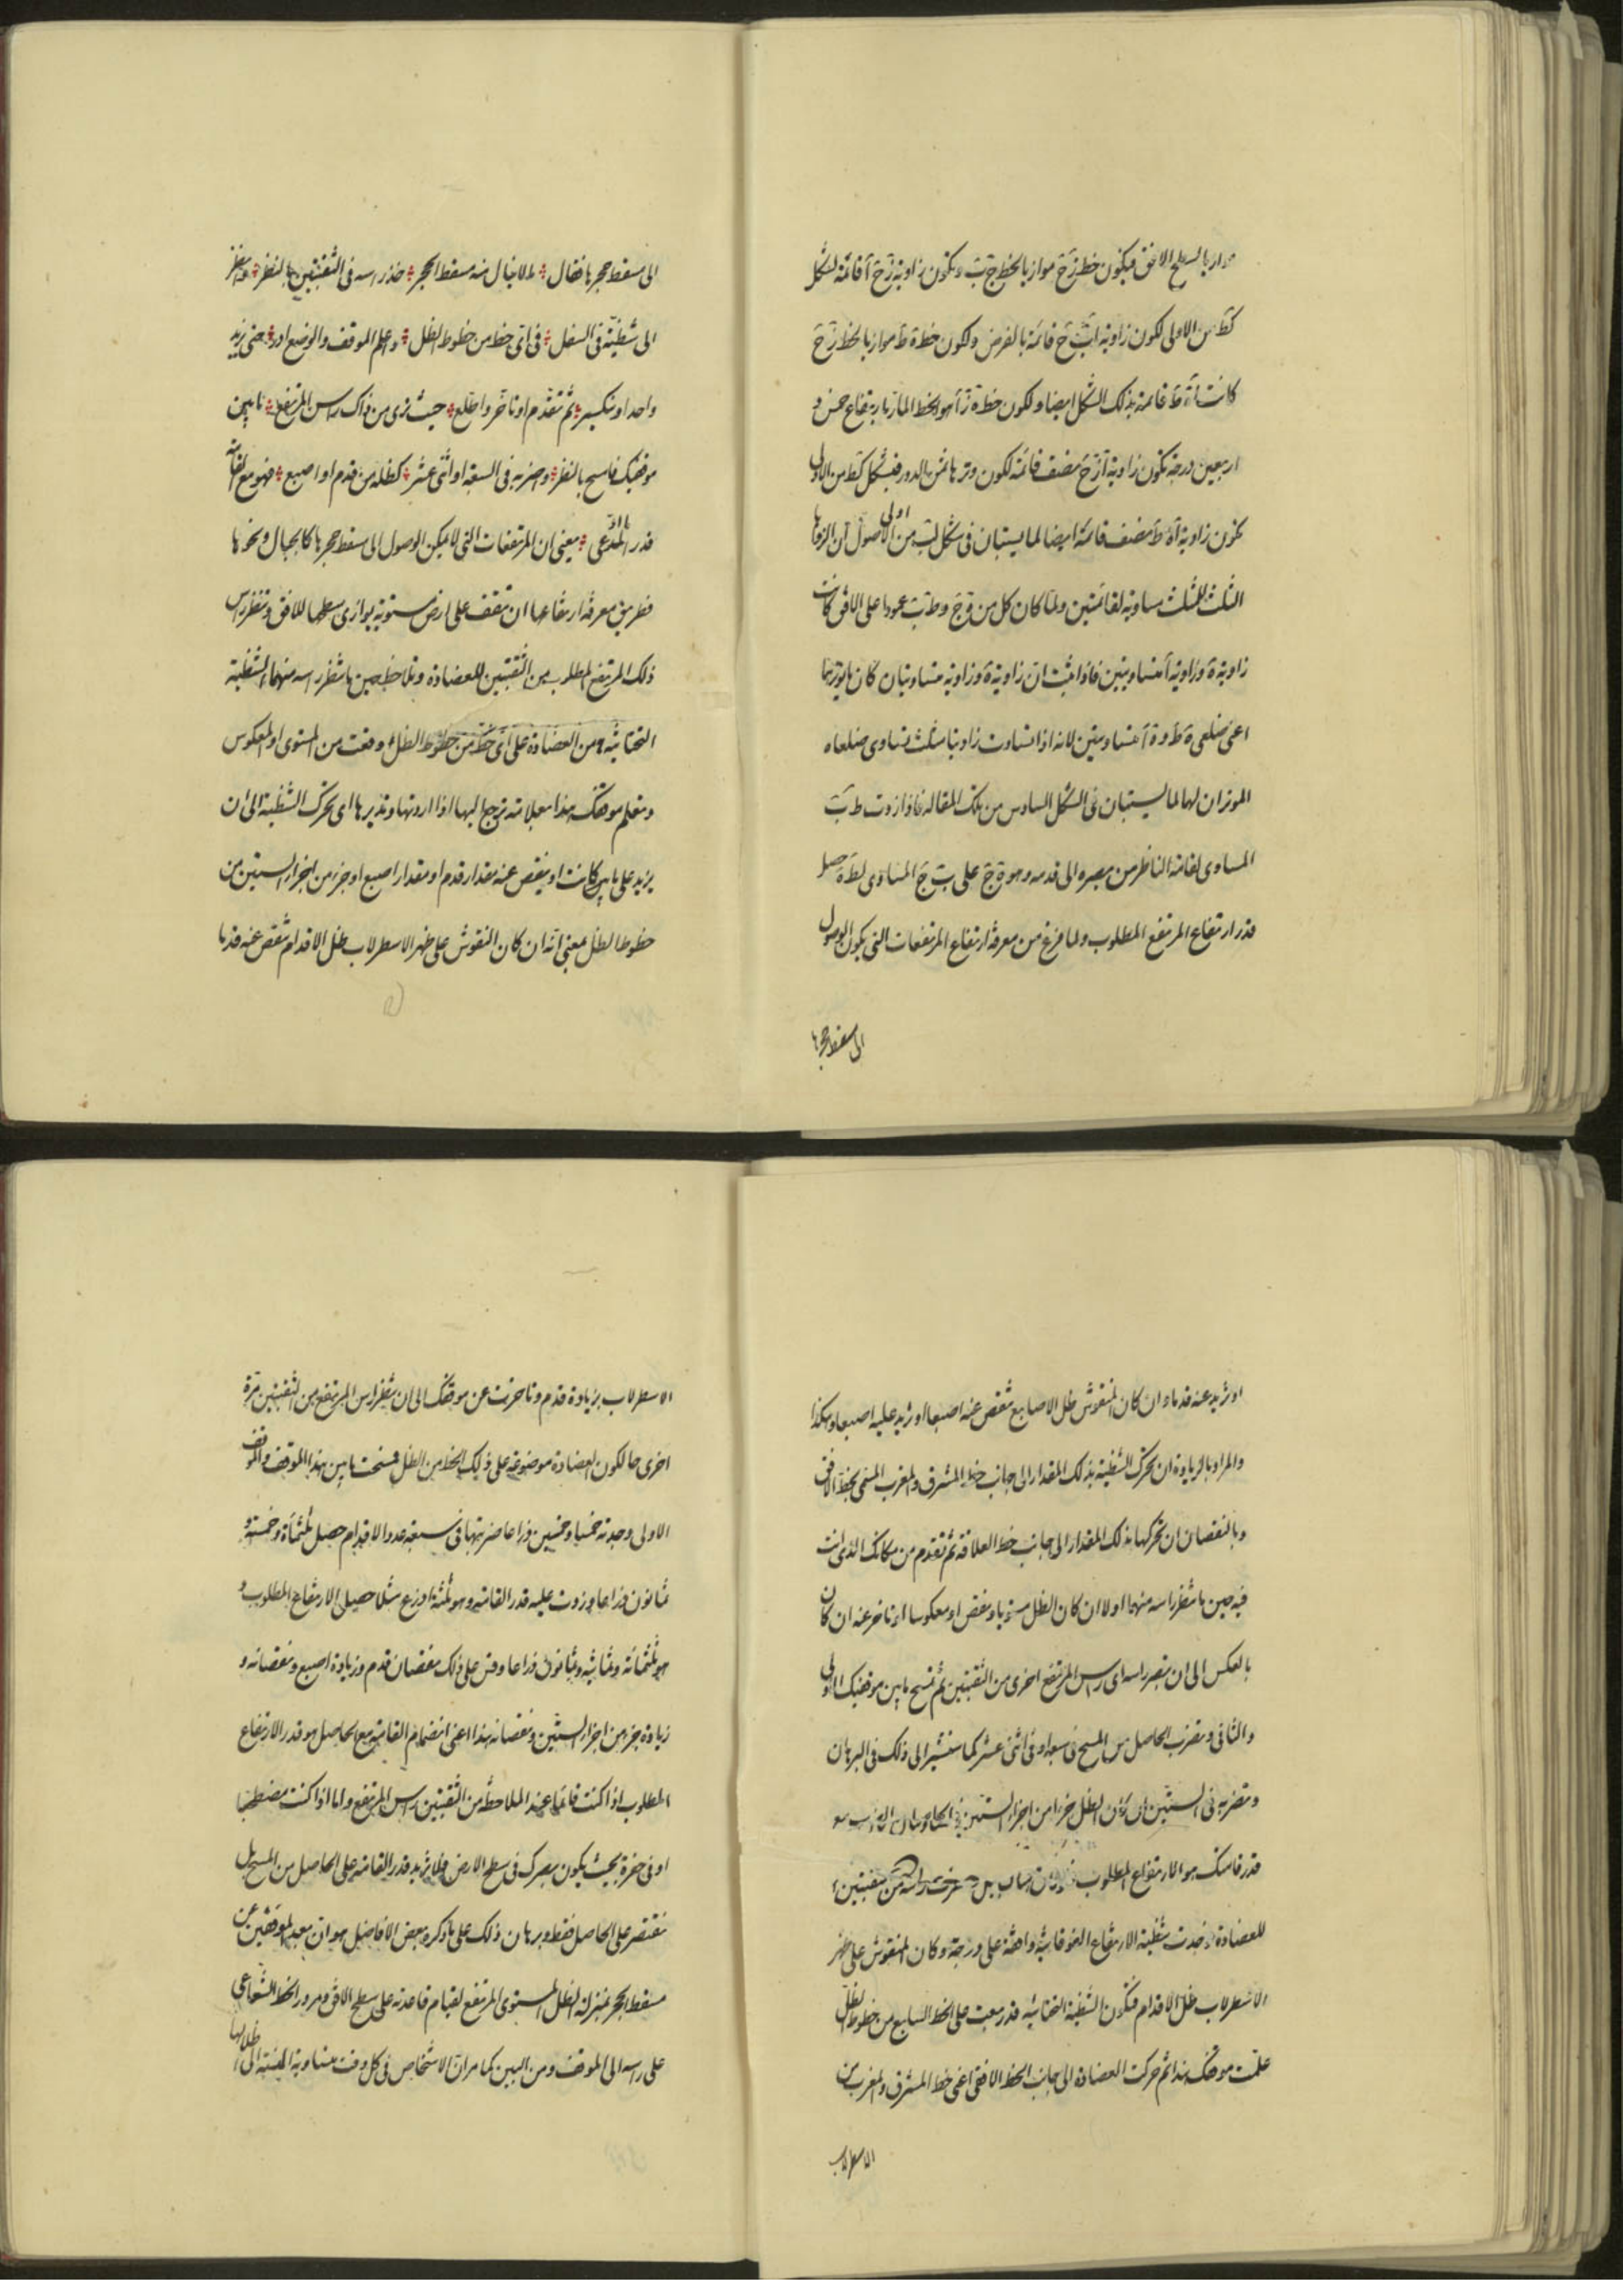 موازيا لسطح الافق فيكون خط زَحَ موازيا لخط جَ بَ ويكون زاوية زَحَ آ قائمة لشكل
كَطَ من الاولى لكون زاوية اَبَ جَ قائمة بالفرض ولكون خط ةَ طَ موازيا لخط زَحَ
كانت آةَ طَ قائمة بذلك الشكل ايضا ولكون خط ةَ زَ آ هو الخط المار بارتفاع خمس و
اربعين درجة تكون زاوية آزَحَ نصف قائمة لكون وترها ثمن الدور فبشكل كَطَ من الاولى
يكون زاوية آةَ طَ نصف قائمة ايضا لما يستبان في شكل لب من اولى الاصول ان الزوايا
الثلث للمثلث مساوية لقائمتين ولما كان كل من ةَ جَ وطَ بَ عمودا على الافق كانت
زاوية ةَ وزاوية آ متساويتين فاذا ثبت ان زاوية ةَ وزاوية متساويتان كان وتراهما
اعني ضلعي ةَ طَ وةَ آ متساويتين لانه اذا تساوت زاويتا مثلث تساوى ضلعاه
الموتران لهما لما يستبان في الشكل السادس من تلك المقالة فاذا زدت طَ بَ
المساوى لقامة الناظر من بصره الى قدمه وهو ةَ جَ على بَ جَ المساوى لطَ ةَ حصل
قدر ارتفاع المرتفع المطلوب ولما فرغ من معرفة ارتفاع المرتفعات التي يكون الوصول
الى مسقط حجرها
الى مسقط حجرها فقال ؞ لا ينال منه مسقط الحجر ؞ فذر راسه في الثقبتين بالنظر ؞ وانظر
الى شظية في السفل ؞ في اى خط من خطوط الظل ؞ واعلم الموقف والوضع ادر ؞ حتى يزيد
واحدا وينكسر ؞ ثم تقدم او تاخر واطلع ؞ حيث ترى من ذاك راس المرتفع ؞ ما بين
موقفيك فامسح بالنظر ؞ واضربه في السبعة او اثنى عشر ؞ كظله من قدم او اصبع ؞ فهو مع القامة
قدر المدعى ؞ يعني ان المرتفعات التي لا يمكن الوصول الى مسقط حجرها كالجبال ونحوها
فطريق معرفة ارتفاعها ان تقف على ارض مستوية يوازى سطحها للافق وتنظر راس
ذلك المرتفع المطلوب من الثقبتين للعضادة وتلاحظ حين ما تنظر راسه منهما الشظية
التحتانية من العضادة على اى خط من خطوط الظل وقعت من المستوى او المعكوس
وتعلم موقفك هذا بعلامة ترجع اليها اذا اردتها وتديرها اى تحرك الشظية الى ان
يزيد على ما كانت او ينقص عنه مقدار قدم او مقدار اصبع او جزء من اجزاء الستين من
خطوط الظل معنى انه ان كان النقوش على ظهر الاسطرلاب ظل الاقدام تنقص عنه قدما
او تزيد عنه قدما وان كان المنقوش ظل الاصابع تنقص عنه اصبعا او تزيد عليه اصبعا وهكذا
والمراد بالزيادة ان تحرك الشظية بذلك المقدار الى جانب خط المشرق والمغرب المسمى بخط الافق
وبالنقصان ان تحركها بذلك المقدار الى جانب خط العلاقة ثم تتقدم من مكانك الذى انت
فيه حين ما تنظر راسه منهما اولا ان كان الظل مستويا ونقص او معكوسا او تتاخر عنه ان كان
بالعكس الى ان تبصر راسه اى راس المرتفع اخرى من الثقبتين ثم تمسح ما بين موقفيك الاولى
والثانى وتضرب الحاصل من المسح في سبعة او في اثنى عشر كما سنشير الى ذلك في البرهان
وتضربه في الستين ان كان الظل جزءا من اجزاء الستين
قدر قامتك هو الارتفاع المطلوب
للعضادة وجدت شظية الارتفاع الفوقانية واقعة على درجة وكان المنقوش على ظهر
الاسطرلاب ظل الاقدام فتكون الشظية التحتانية قد وقعت على الخط السابع من خطوط الظل
علمت موقفك هذا ثم حركت العضادة الى جانب الخط الافقى اعنى خط المشرق والمغرب من
الاسطرلاب
الاسطرلاب بزيادة قدم وتاخرت عن موقفك الى ان تنظر راس المرتفع من الثقبتين مرة
اخرى حال كون العضادة موضوعة على ذلك الخط من الظل فمسحت ما بين هذا الموقف والموقف
الاولى وجدته خمسا وخمسين ذراعا ضربتها في سبعة عدد الاقدام حصل ثلثمائة وخمسة و
ثمانون ذراعا وزدت عليه قدر القامة وهو ثلثة اذرع مثلا حصل الارتفاع المطلوب و
هو ثلثمائة وثمانية وثمانون ذراعا وقس على ذلك نقصان قدم وزيادة اصبع ونقصانه و
زيادة جزء من اجزاء الستين ونقصانه هذا اعنى انضمام القامة مع الحاصل هو قدر الارتفاع
المطلوب اذا كنت قائما عند الملاحظة من الثقبتين راس المرتفع واما اذا كنت مضطجعا
او في حفرة بحيث يكون بصرك في سطح الارض فلا تزيد قدر القامة على الحاصل من المسح بل
تقتصر على الحاصل فقط وبرهان ذلك على ما ذكره بعض الافاضل هو ان بعد الموقفين عن
مسقط الحجر بمنزلة الظل المستوى المرتفع لقيام قاعدته على سطح الافق ومرور الخط الشعاعى
على راسه الى الموقف ومن البين كما مر ان الاشخاص في كل وقت متساوية النسبة الى اظلالها